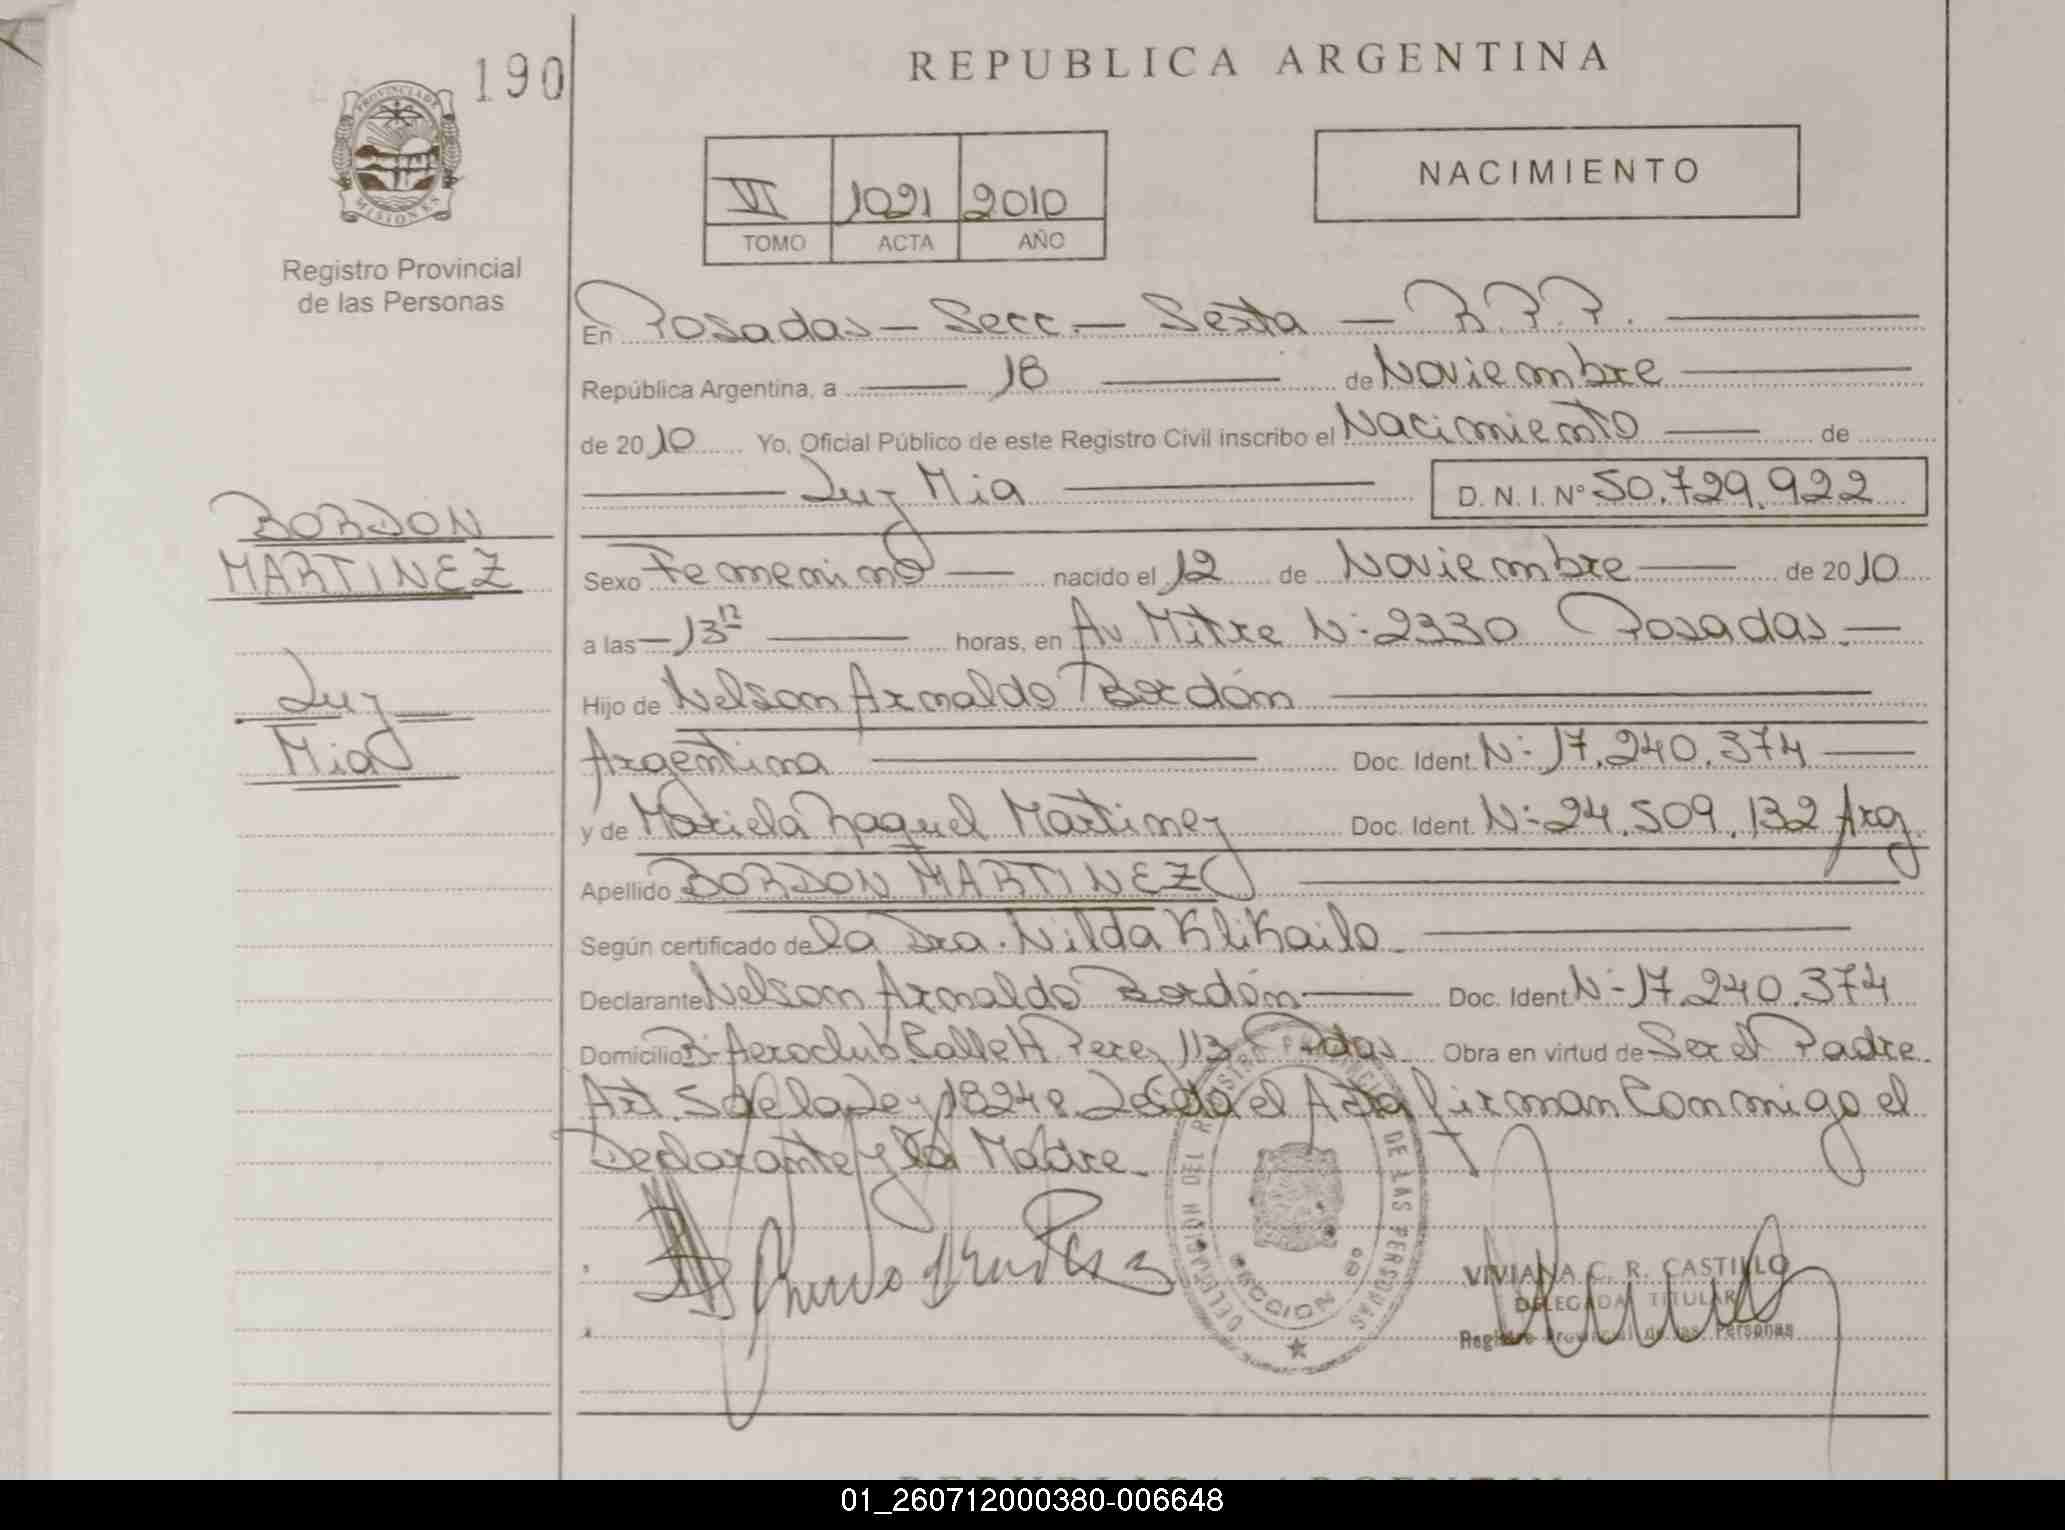 190
REPUBLICA ARGENTINA
PROVINCIA DE
MISIONES
Registro Provincial
de las Personas
VI 1021 2010
TOMO ACTA AÑO
NACIMIENTO
En Posadas – Secc. – Sexta – R.P.P.
República Argentina, a 18 de Noviembre
de 2010 Yo, Oficial Público de este Registro Civil inscribo el Nacimiento de
Luz Mia D. N. I. Nº 50.729.922
BORDON
MARTINEZ
Luz
Mia
Sexo Femenino nacido el 12 de Noviembre de 2010
a las 13 12 horas, en Av. Mitre N: 2330 Posadas.
Hijo de Nelson Arnaldo Bordón
Argentina Doc. Ident. N: 17.240.374
y de Mariela Raquel Martinez Doc. Ident. N: 24.509.132 Arg.
Apellido BORDON MARTINEZ
Según certificado de la Dra. Nilda Klikailo
Declarante Nelson Arnaldo Bordón Doc. Ident. N: 17.240.374
Domicilio B: Aeroclub Calle H Perez 113 Pdas. Obra en virtud de Ser el Padre.
Art. 5 de la Ley 18248 Leída el Acta firman Conmigo el
Declarante y la Madre.
REGISTRO PROVINCIAL DE LAS PERSONAS
DELEGACION
SECCION 6º
VIVIANA C. R. CASTILLO
DELEGADA TITULAR
Registro Provincial de las Personas
01_260712000380-006648